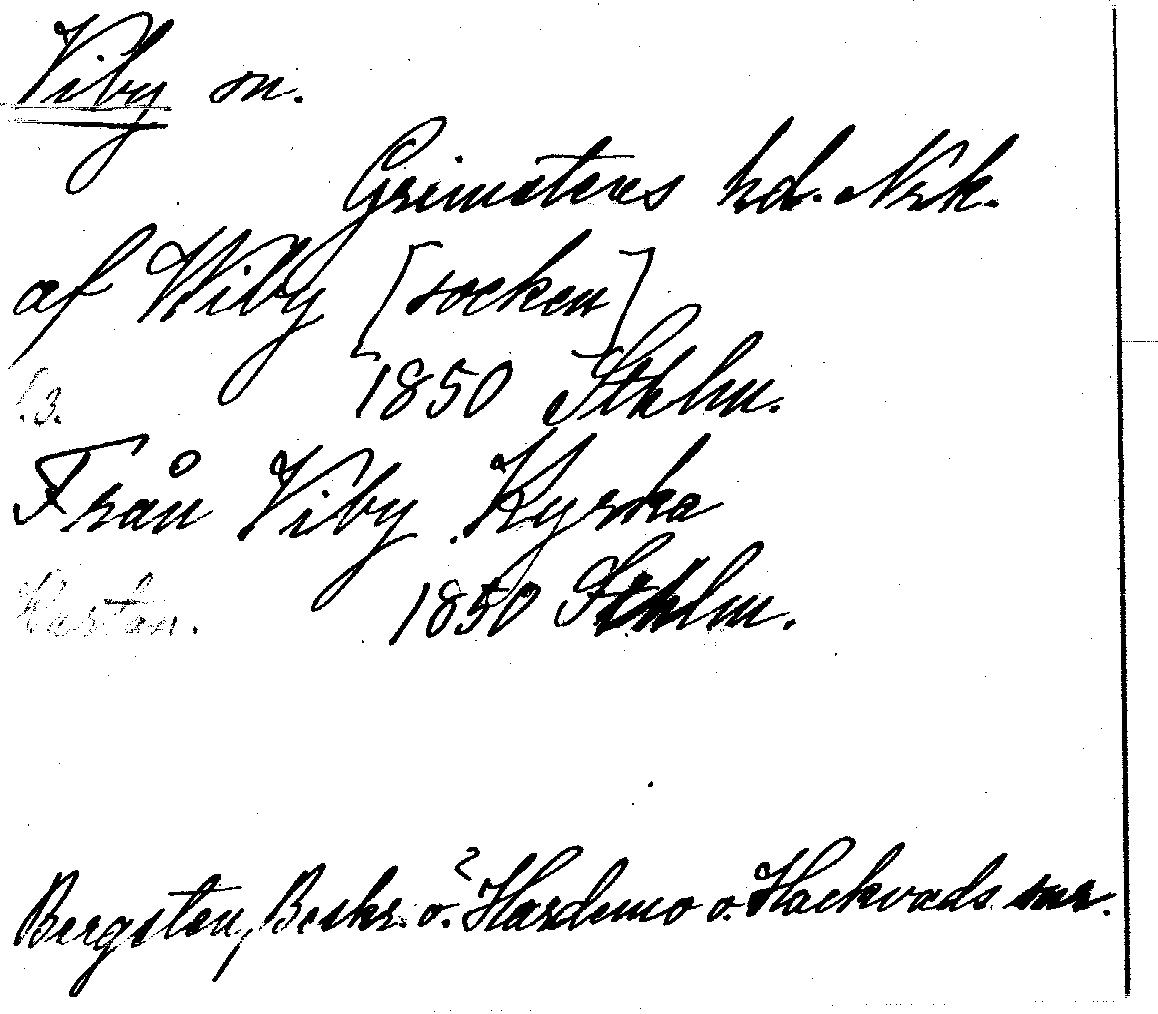 Viby sn.
Grimstens hd. Nrk.
af Wiby [socken]
S. 3. 1850 Sthlm.
Från Viby Kyrka
Kartan. 1850 Sthlm.
Bergsten, Beskr. ö. Hardemo o. Hackvads snr.